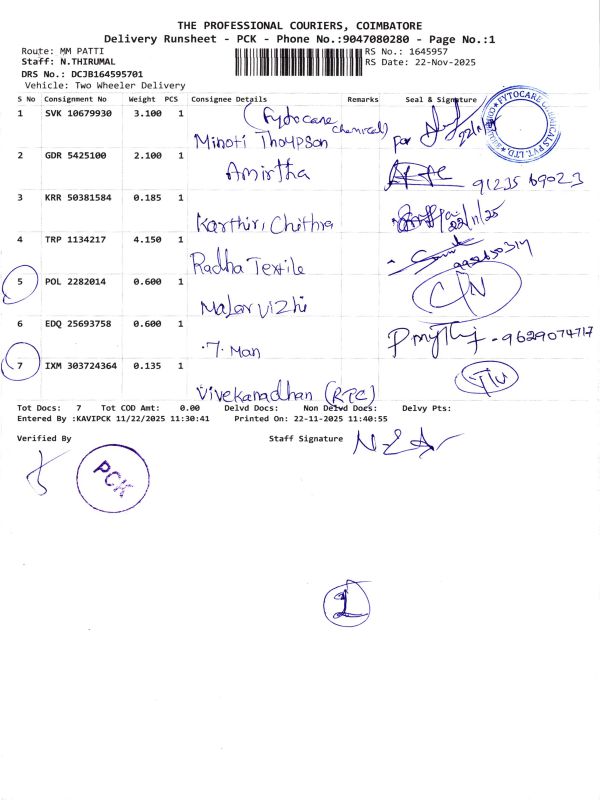 THE PROFESSIONAL COURIERS, COIMBATORE
Delivery Runsheet - PCK - Phone No.:9047080280 - Page No.:1
Route: MM PATTI RS No.: 1645957
Staff: N.THIRUMAL RS Date: 22-Nov-2025
DRS No.: DCJB164595701
Vehicle: Two Wheeler Delivery
S No Consignment No Weight PCS Consignee Details Remarks Seal & Signature
1 SVK 10679930 3.100 1 (Fytocare chemicals) for
Minoti Thompson
2 GDR 5425100 2.100 1 Amirtha
91235 69023
3 KRR 50381584 0.185 1
Karthiri, Chithra 22/11/25
4 TRP 1134217 4.150 1
Radha Textile
5 POL 2282014 0.600 1 C/N
Malar vizhi
6 EDQ 25693758 0.600 1
.7. Man - 9629074717
7 IXM 303724364 0.135 1
Vivekanadhan (RTC)
Tot Docs: 7 Tot COD Amt: 0.00 Delvd Docs: Non Delvd Docs: Delvy Pts:
Entered By :KAVIPCK 11/22/2025 11:30:41 Printed On: 22-11-2025 11:40:55
Verified By Staff Signature
PCK
1